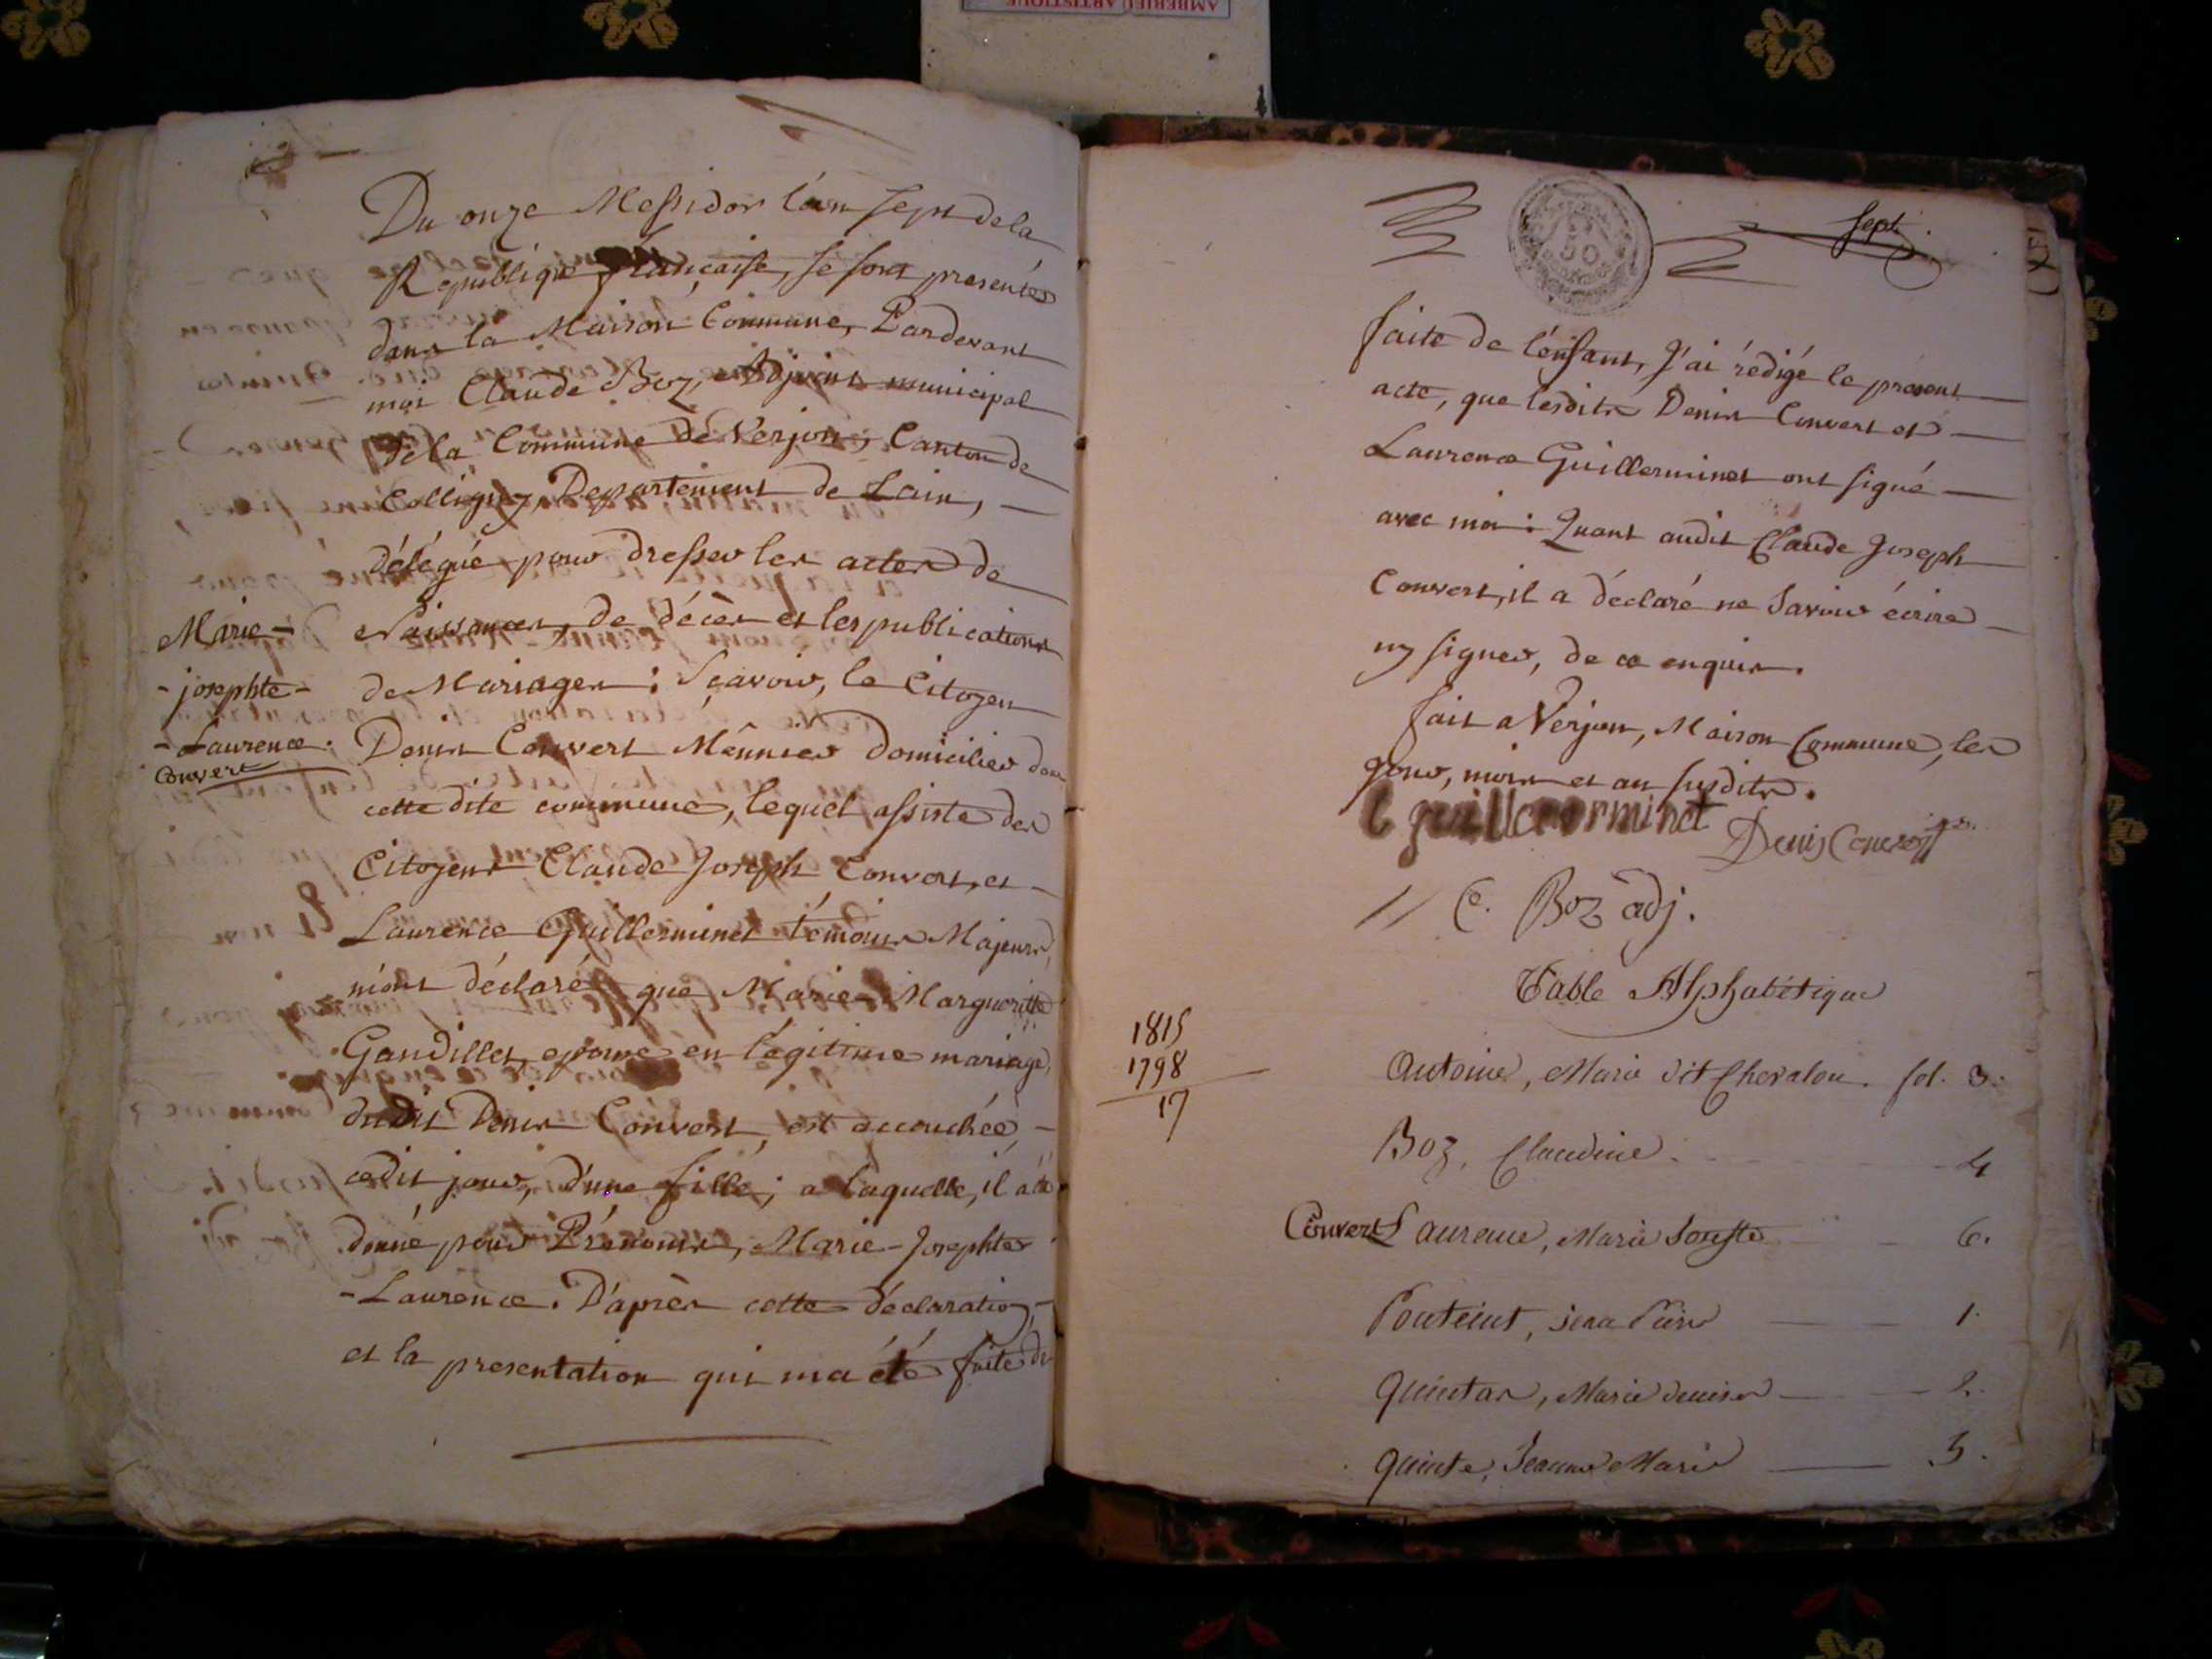 AMBERIEU ARTISTIQUE
Du onze Messidor l'an sept de la
Republique française, se sont presentés
dans la Maison Commune, Pardevant
moi Claude Boz, Adjoint municipal
de la Commune de Verjon, Canton de
Colligny, Departement de Lain,
délégué pour dresser les actes de
Naissances, de décès et les publications
de Mariages : Sçavoir, le Citoyen
Denis Convert Meûnier domicilier dans
cette dite commune, lequel assisté des
Citoyens Claude Joseph Convert, et
Laurence Guillerminet témoins Majeurs,
m'ont déclaré que Marie-Margueritte
Gandillet, epouse en légitime mariage,
dudit Denis Convert, est accouchée,
cedit jour, d'une fille ; a laquelle, il a été
donné pour Prénoms, Marie-Josephte
-Laurence. D'après cette déclaration,
et la presentation qui ma été faite de
Marie-
-josephte-
-Laurence.
Convert
30
sept
faite de l'enfant, J'ai rédigé le présent
acte, que lesdits Denis Convert et
Laurence Guillerminet ont signé
avec moi : Quant audit Claude Joseph
Convert, il a déclaré ne Savoir écrire
ny signer, de ce enquis.
fait a Verjon, Maison Commune, les
jour, mois et an susdits.
l guillerminet Denis Convert
C. Boz adj.
Table Alphabétique
1815
1798
17
Antoine, Marie dit Chevalon. fol. 3.
Boz, Claudine. 4
Convert Laurence, Marie Josefte 6.
Ponteint, jean Pierre 1.
Quintar, Marie denise 2.
Quinte, Jeanne Marie 5.